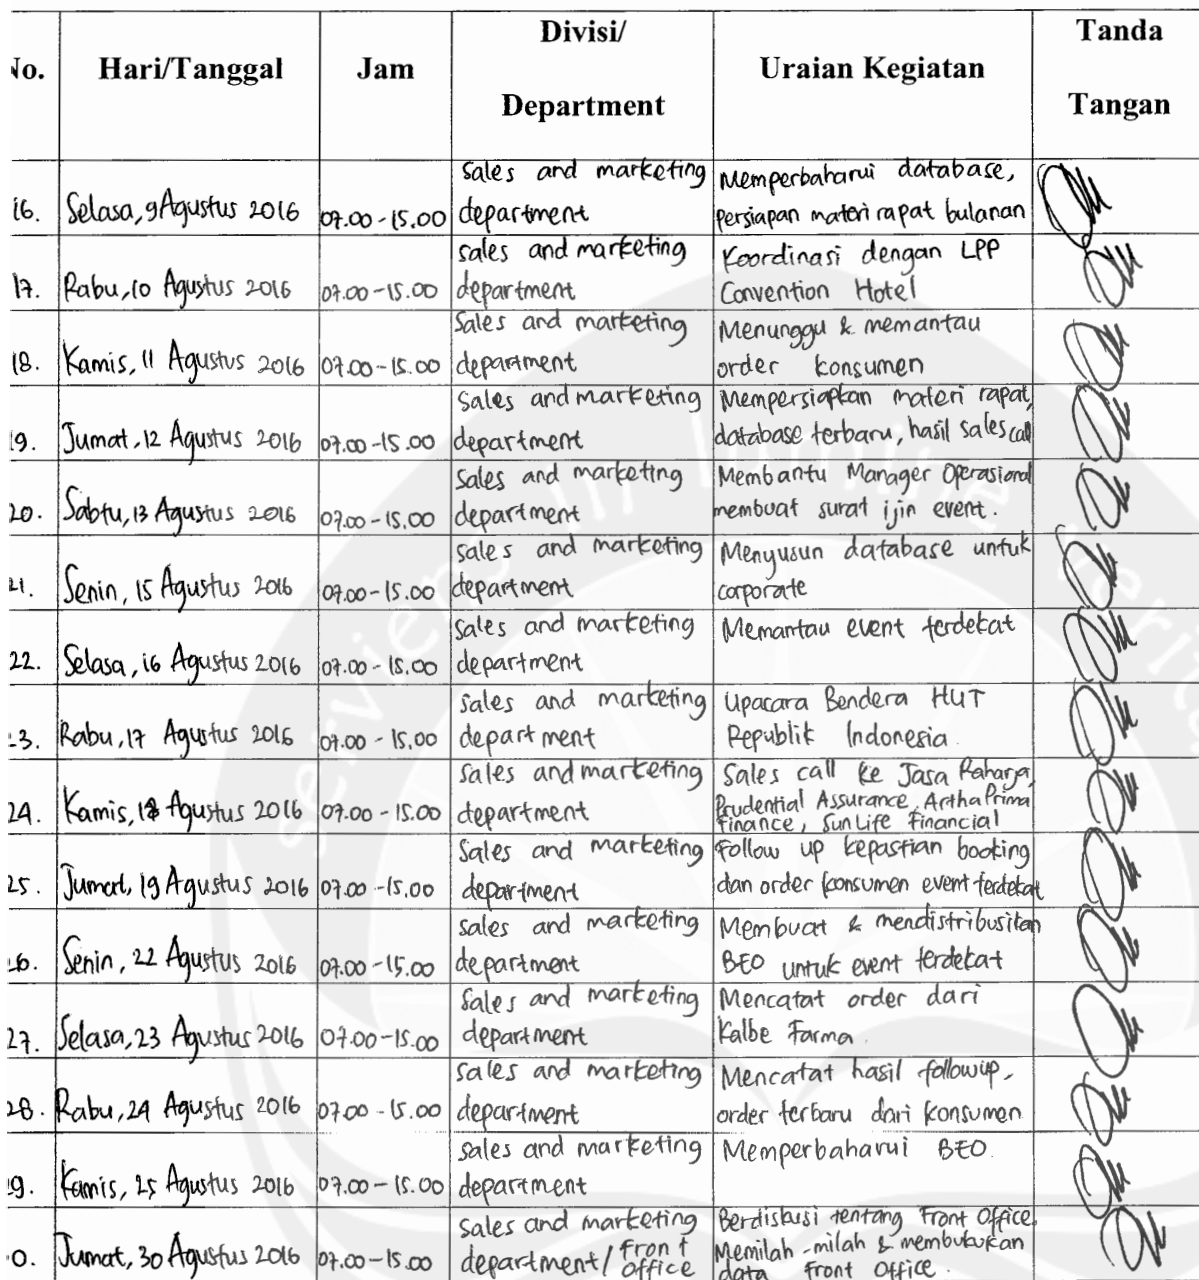 No. Hari/Tanggal Jam Divisi/ Department Uraian Kegiatan Tanda Tangan
16. Selasa, 9 Agustus 2016 07.00-15.00 Sales and marketing department Memperbaharui database, persiapan materi rapat bulanan
17. Rabu, 10 Agustus 2016 07.00-15.00 sales and marketing department Koordinasi dengan LPP Convention Hotel
18. Kamis, 11 Agustus 2016 07.00-15.00 Sales and marketing department Menunggu & memantau order konsumen
19. Jumat, 12 Agustus 2016 07.00-15.00 Sales and marketing department Mempersiapkan materi rapat, database terbaru, hasil sales call
20. Sabtu, 13 Agustus 2016 07.00-15.00 Sales and marketing department Membantu Manager Operasional membuat surat ijin event.
21. Senin, 15 Agustus 2016 07.00-15.00 sales and marketing department Menyusun database untuk corporate
22. Selasa, 16 Agustus 2016 07.00-15.00 sales and marketing department Memantau event terdekat
23. Rabu, 17 Agustus 2016 07.00-15.00 sales and marketing department Upacara Bendera HUT Republik Indonesia.
24. Kamis, 18 Agustus 2016 07.00-15.00 Sales and marketing department Sales call ke Jasa Raharja, Prudential Assurance, Artha Prima Finance, Sun Life Financial
25. Jumat, 19 Agustus 2016 07.00-15.00 Sales and marketing department Follow up kepastian booking dan order konsumen event terdekat
26. Senin, 22 Agustus 2016 07.00-15.00 sales and marketing department Membuat & mendistribusikan BEO untuk event terdekat
27. Selasa, 23 Agustus 2016 07.00-15.00 Sales and marketing department Mencatat order dari Kalbe Farma.
28. Rabu, 24 Agustus 2016 07.00-15.00 sales and marketing department Mencatat hasil followup, order terbaru dari konsumen
29. Kamis, 25 Agustus 2016 07.00-15.00 sales and marketing department Memperbaharui BEO.
0. Jumat, 30 Agustus 2016 07.00-15.00 sales and marketing department/front office Berdiskusi tentang Front Office, Memilah-milah & membukukan data Front Office.
serviens in lumine veritatis